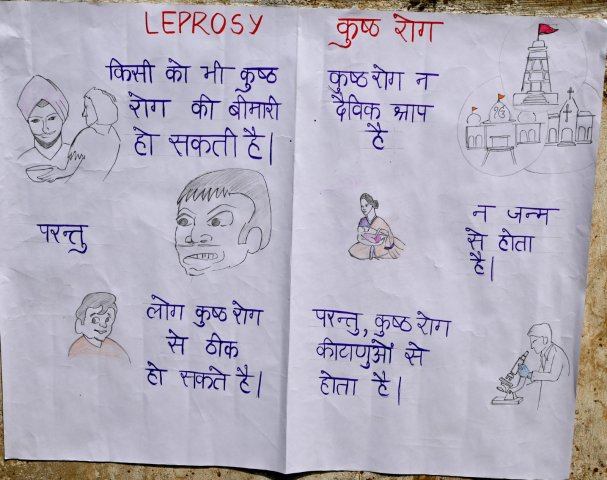 LEPROSY
किसी को भी कुष्ठ
रोग की बीमारी
हो सकती है|
परन्तु
लोग कुष्ठ रोग
से ठीक
हो सकते है|
कुष्ठ रोग
कुष्ठ रोग न
दैविक श्राप
है
न जन्म
से होता
है|
परन्तु, कुष्ठ रोग
कीटाणुओं से
होता है|